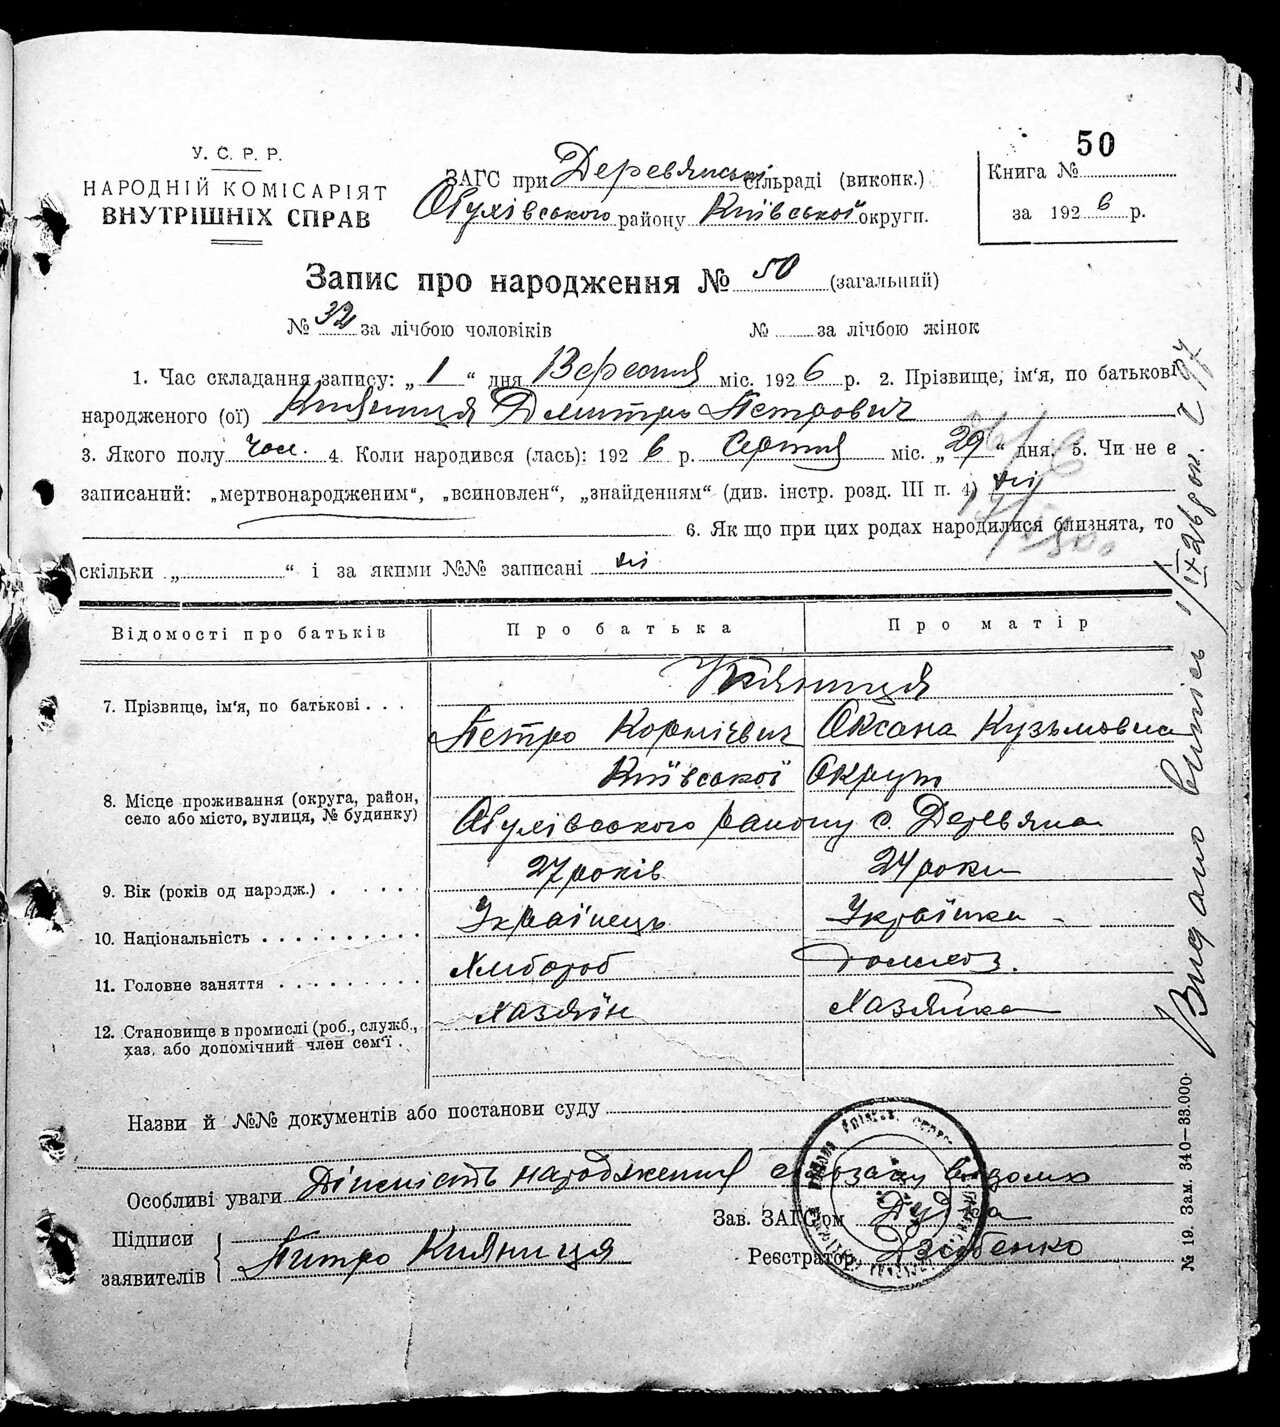 50
У. С. Р. Р.
НАРОДНІЙ КОМІСАРІЯТ
ВНУТРІШНІХ СПРАВ
ЗАГС при Деревянській сільраді (виконк.)
Обухівського району Київської округи.
Книга №
за 1926 р.
Запис про народження № 50 (загальний)
№ 32 за лічбою чоловіків № за лічбою жінок
1. Час складання запису: „1“ дня Вересня міс. 1926 р. 2. Прізвище, ім'я, по батькові
народженого (ої) Кияниця Дмитро Петрович
3. Якого полу чол. 4. Коли народився (лась): 1926 р. Серпня міс. „29“ дня. 5. Чи не є
записаний: „мертвонародженим“, „всиновлен“, „знайденням“ (див. інстр. розд. III п. 4) ні
6. Як що при цих родах народилися близнята, то
скільки „ “ і за якими №№ записані ні
Відомості про батьків Про батька Про матір
Кияниця
7. Прізвище, ім'я, по батькові . . . Петро Корнієвич Оксана Кузьмовна
Київської Округи
8. Місце проживання (округа, район,
село або місто, вулиця, № будинку) Обухівського району с. Деревяна
9. Вік (років од нарэдж.) . . . . . 27 років 24 роки
10. Національність . . . . . . . . . . Українець Українка
11. Головне заняття . . . . . . . . . Хлібороб домгоз.
12. Становище в промислі (роб., служб.,
хаз. або допомічний член сем'ї . Хазяїн Хазяйка
Назви й №№ документів або постанови суду
Особливі уваги Дійсність народження сільраді відомо
Підписи
заявителів Питро Кияниця
Зав. ЗАГС'ом Дудка
Реєстратор Дзюбенко
Видано витпісь 1/IX 26 р.
№ 19. Зам. 340—33.000.